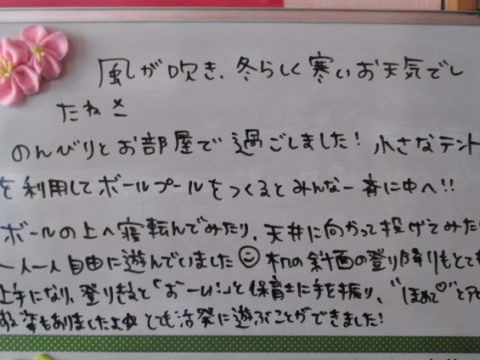 風が吹き、冬らしく寒いお天気でし
たねさ
のんびりとお部屋で過ごしました！小さなテント
を利用してボールプールをつくるとみんな一斉に中へ!!
ボールの上へ寝転んでみたり、天井に向かって投げてみた
一人一人自由に遊んでいました☺机の斜面の登り降りもとて
上手になり、登りきると「おーい！」と保育士に手を振り、“ほめて♡”と
る姿もありましたよ☆とても活発に遊ぶことができました！